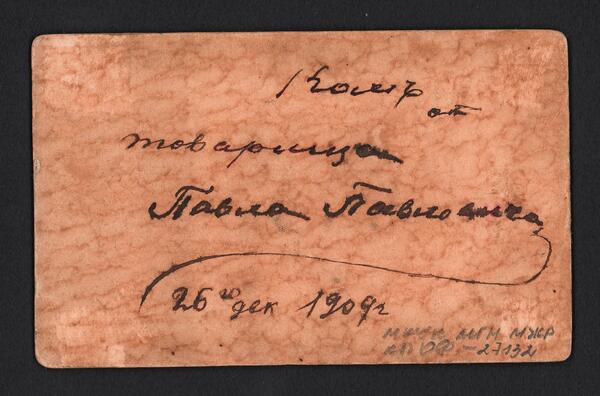 Колѣ
от
товарища
Павла Павловича
26го дек 1909г
МЖК МГН МЖР
КП ОФ - 27132